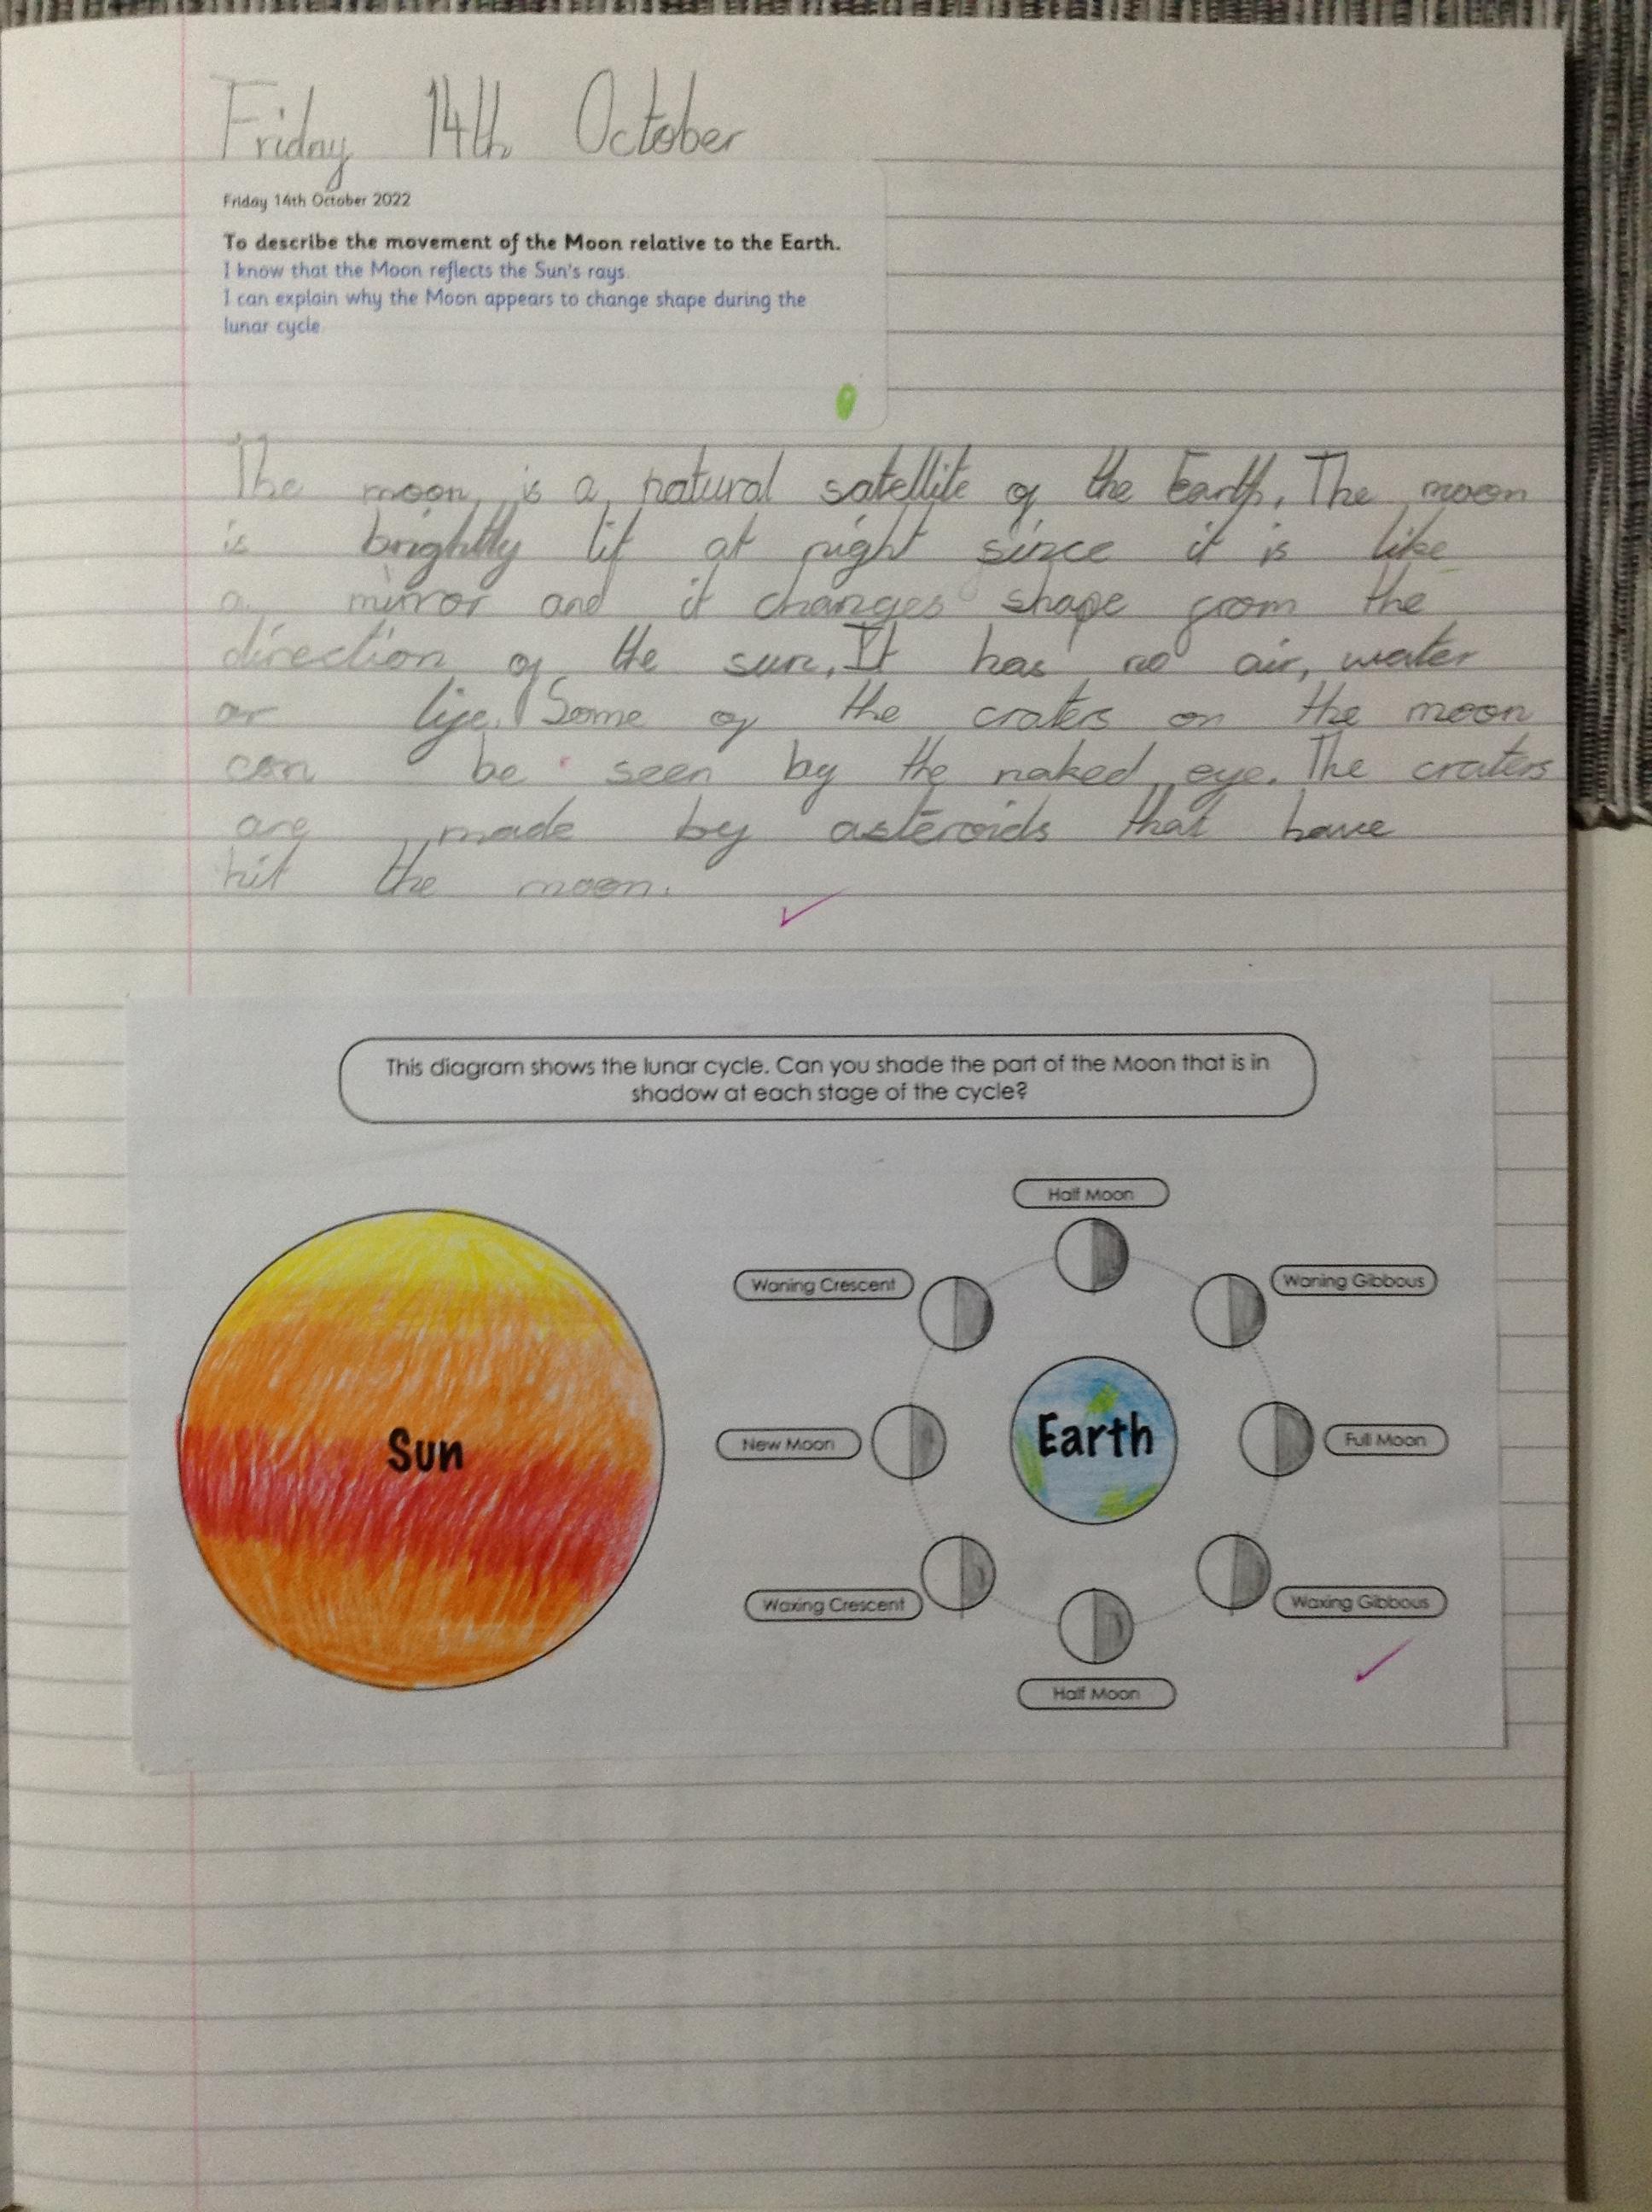 Friday 14th October
Friday 14th October 2022
To describe the movement of the Moon relative to the Earth.
I know that the Moon reflects the Sun's rays.
I can explain why the Moon appears to change shape during the
lunar cycle.
The moon is a natural satellite of the Earth. The moon
is brightly lit at night since it is like
a mirror and it changes shape from the
direction of the sun. It has no air, water
or life. Some of the craters on the moon
can be seen by the naked eye. The craters
are made by asteroids that have
hit the moon.
This diagram shows the lunar cycle. Can you shade the part of the Moon that is in
shadow at each stage of the cycle?
Half Moon
Waning Crescent
Waning Gibbous
Sun
New Moon
Earth
Full Moon
Waxing Crescent
Waxing Gibbous
Half Moon